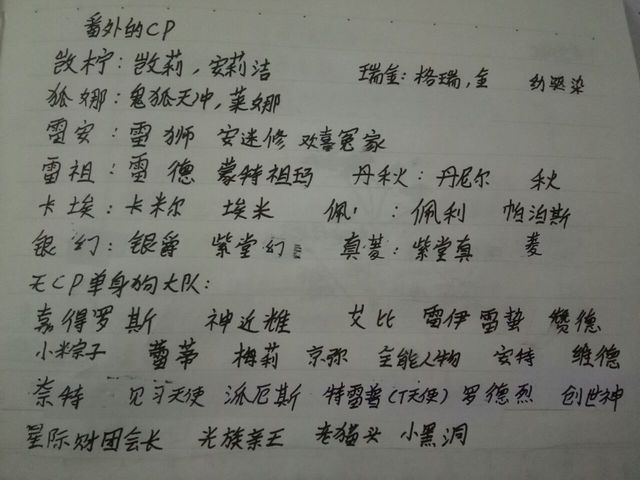 番外的CP
凯柠：凯莉，安莉洁 瑞金：格瑞，金
狐娜：鬼狐天冲，莱娜
雷安：雷狮 安迷修 欢喜冤家
雷祖：雷德 蒙特祖玛 丹秋：丹尼尔 秋
卡埃：卡米尔 埃米 佩 ：佩利 帕洛斯
银幻：银爵 紫堂幻 真菱：紫堂真 菱
无CP单身狗大队：
嘉德罗斯 神近耀 艾比 雷伊 雷蛰 赞德
小米宗子 蕾蒂 梅莉 京弥 全能人物 安特 维德
奈特 见习天使 派厄斯 特雷普(T天使) 罗德烈 创世神
星际财团会长 光族亲王 老猫头 小黑洞